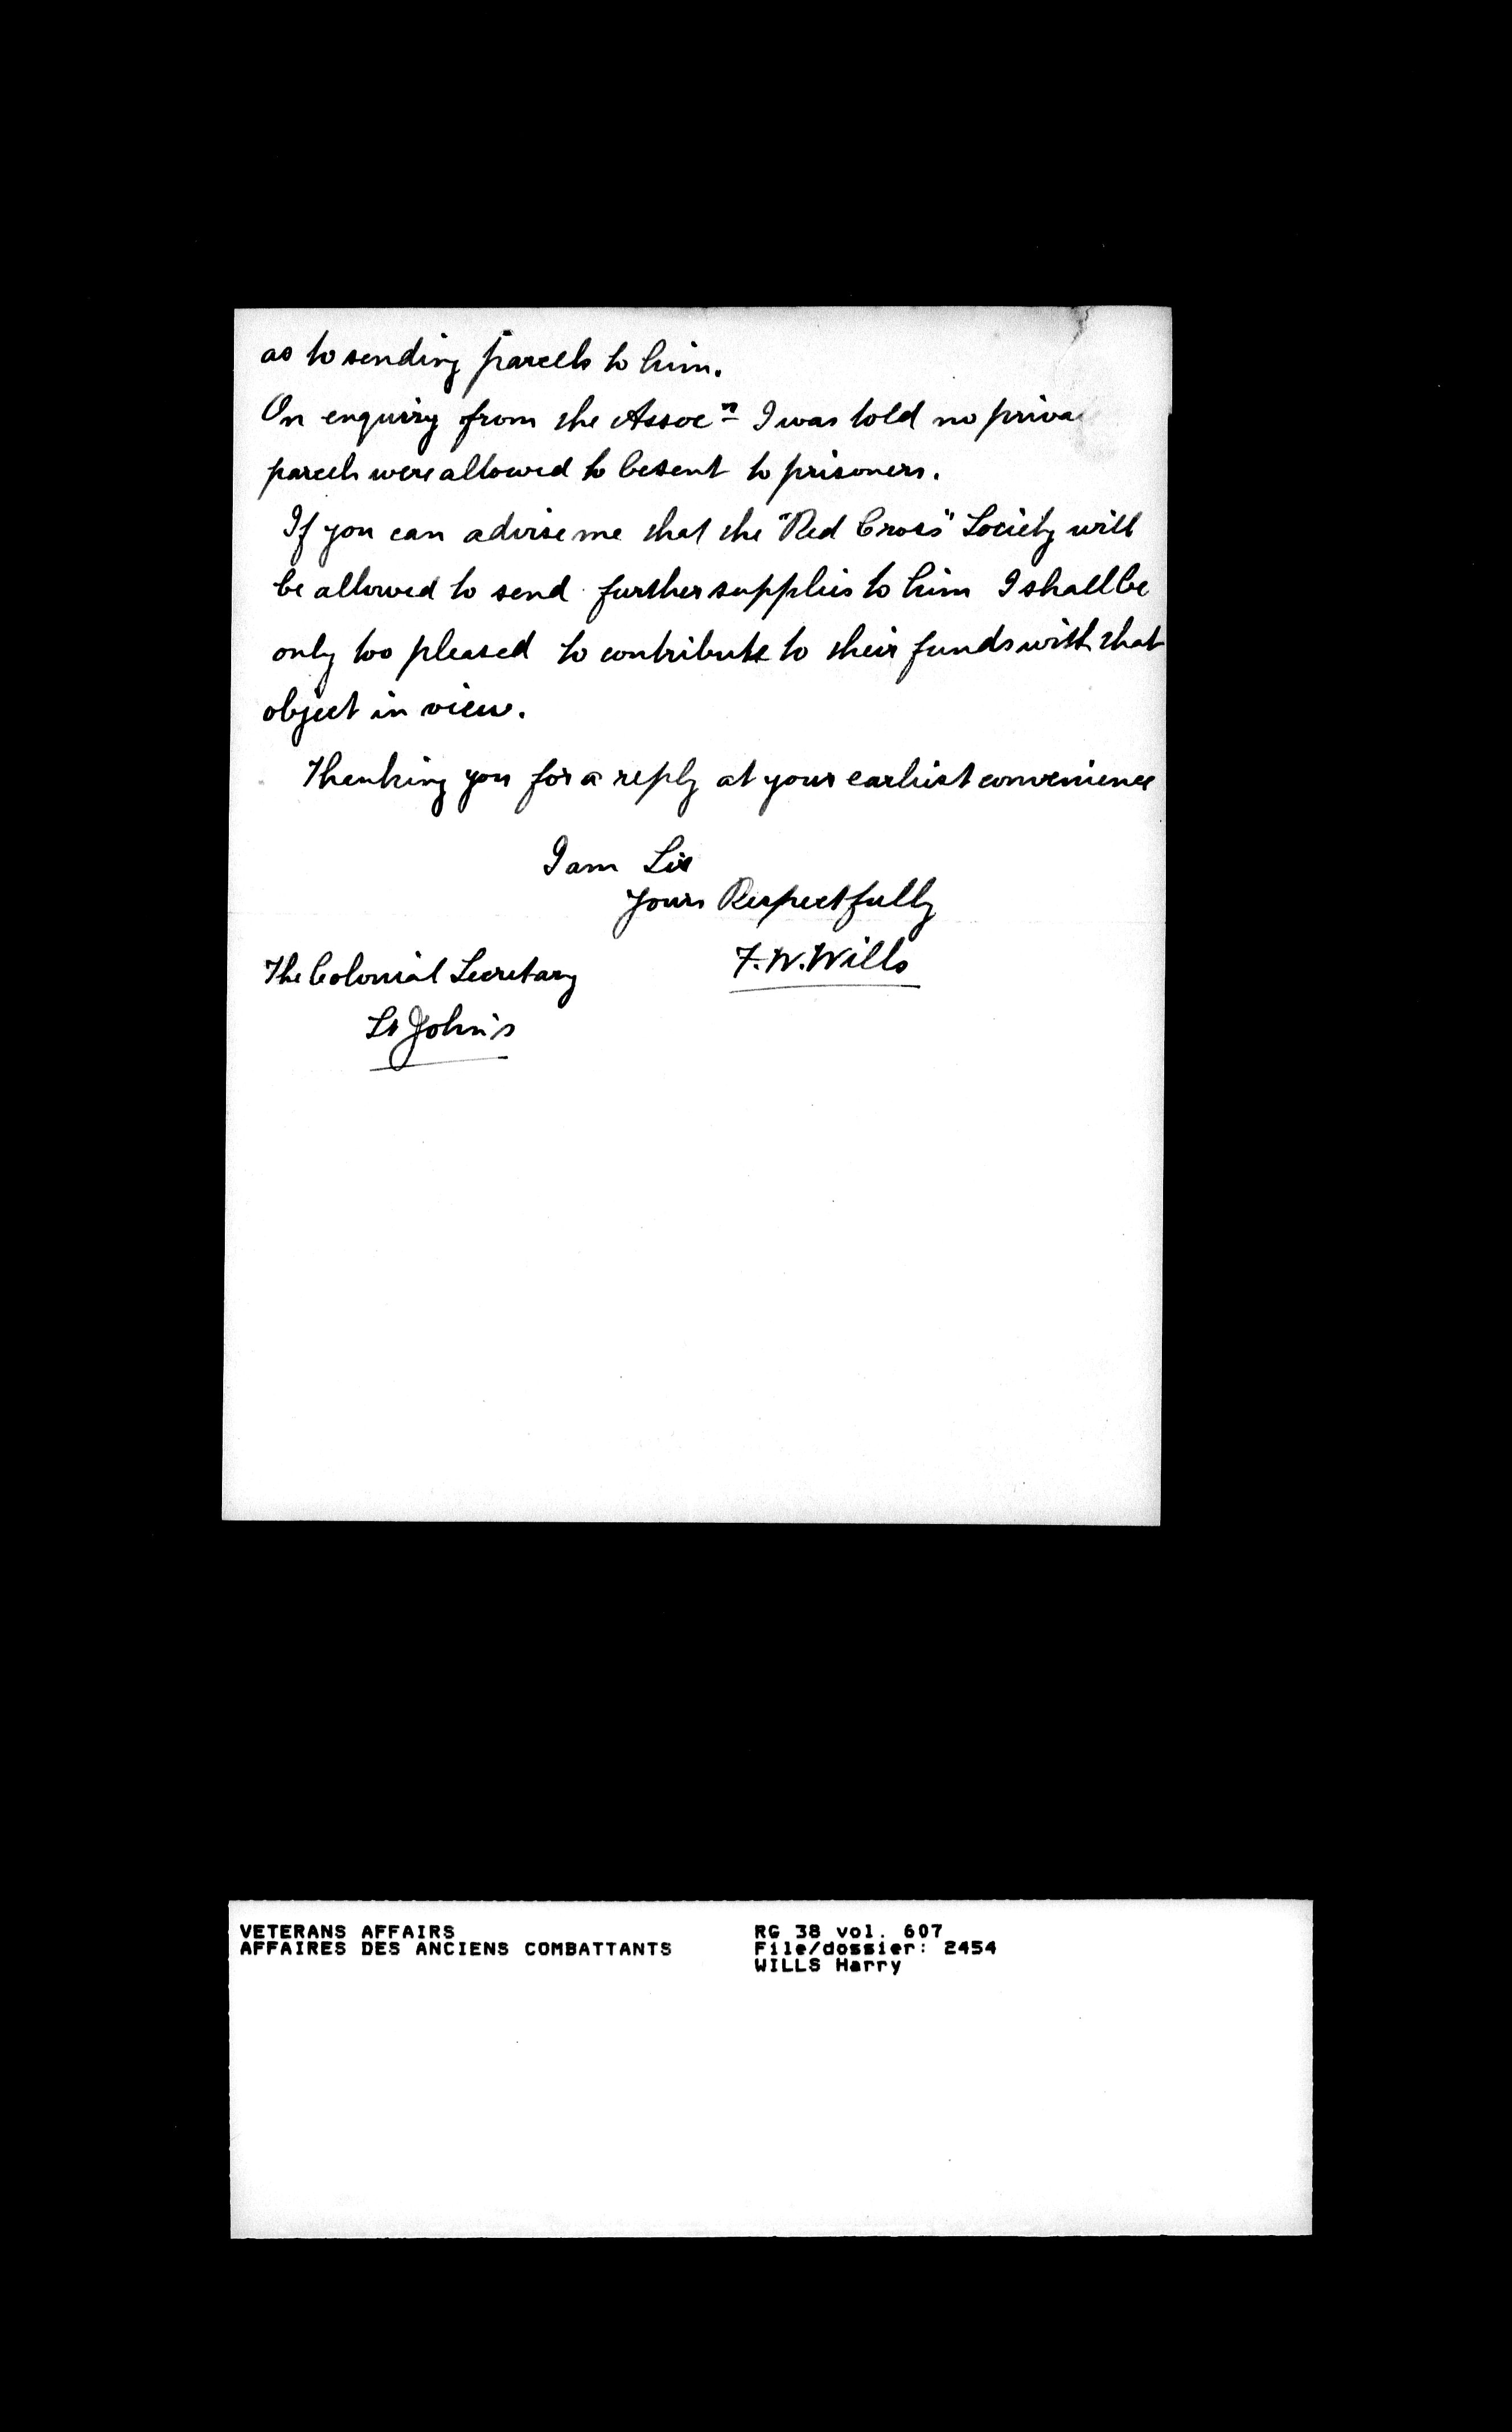 as to sending parcels to him.
On enquiry from the Assocⁿ I was told no priva
parcels were allowed to be sent to prisoners.
If you can advise me that the "Red Cross" Society will
be allowed to send further supplies to him I shall be
only too pleased to contribute to their funds with that
object in view.
Thanking you for a reply at your earliest convenience
I am Sir
Yours Respectfully
F. W. Wills
The Colonial Secretary
St John's
VETERANS AFFAIRS
AFFAIRES DES ANCIENS COMBATTANTS
RG 38 vol. 607
File/dossier: 2454
WILLS Harry